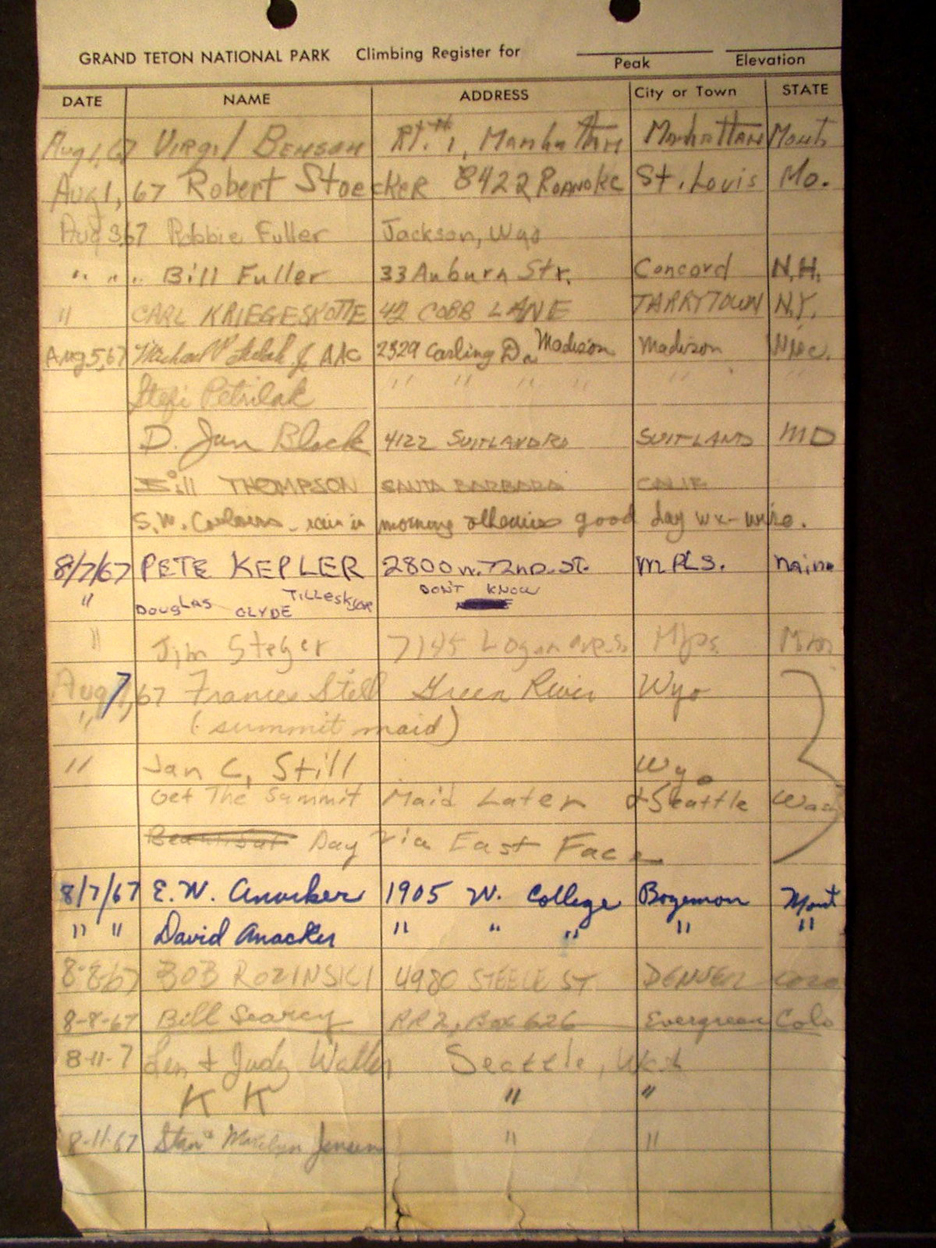 GRAND TETON NATIONAL PARK Climbing Register for
Peak Elevation
DATE NAME ADDRESS City or Town STATE
Aug 1, 67 VIRGIL BENSON Rt. #1, Manhattan Manhattan Mont.
Aug 1, 67 Robert Stoecker 8422 ROANOKE St. Louis Mo.
Aug 3, 67 Robbie Fuller Jackson, Wyo
" " " Bill Fuller 33 Auburn Str. Concord N.H.
" CARL KRIEGESKOTTE 42 COBB LANE TARRYTOWN N.Y.
Aug 5, 67 Michael Jr. AAC 2329 Carling Dr. Madison Madison
Stefi Petrilak " " " " " "
D. Jun Block 4122 SUITLAND RD SUITLAND MD
Bill THOMPSON SANTA BARBARA CALIF
S.W. - rain in morning otherwise good day wx-wise.
8/7/67 PETE KEPLER 2800 W. 72ND. ST. MPLS.
" Douglas CLYDE DON'T KNOW
" Jim Steger 7145 Logan ave. S. Mpls. Minn
Aug 7, 67 Frances Still Green River Wyo
" (summit maid)
" Jan C. Still Wyo
Get The Summit Maid Later & Seattle Was
Beautiful Day Via East Face
8/7/67 E.W. Anacker 1905 W. College Bozeman Mont
" " David Anacker " " " " "
8-8-67 BOB ROZINSKI 4980 STEELE ST. DENVER COLO
8-8-67 Bill Searcy RR2, Box 626 Evergreen Colo
8-11-7 Len & Judy Waller Seattle, Wash
K K " "
8-11-67 Stan & Marilyn Jensen " "